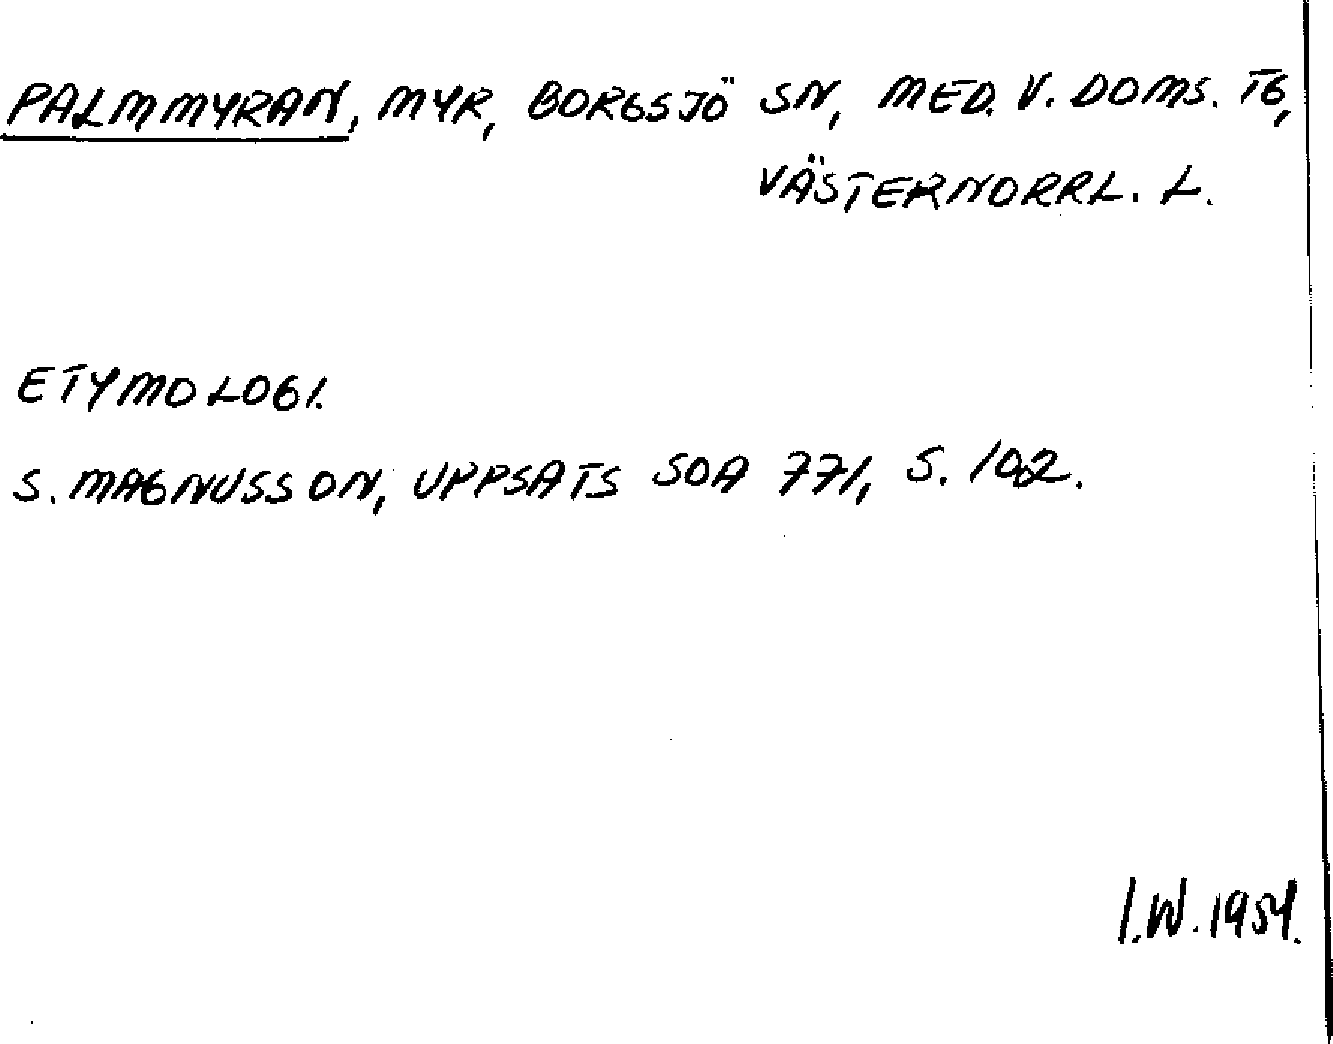 PALMMYRAN, MYR, BORGSJÖ SN, MED. V. DOMS. TG,
VÄSTERNORRL. L.
ETYMOLOGI.
S. MAGNUSSON, UPPSATS SOA 771, S. 102.
I.W. 1954.